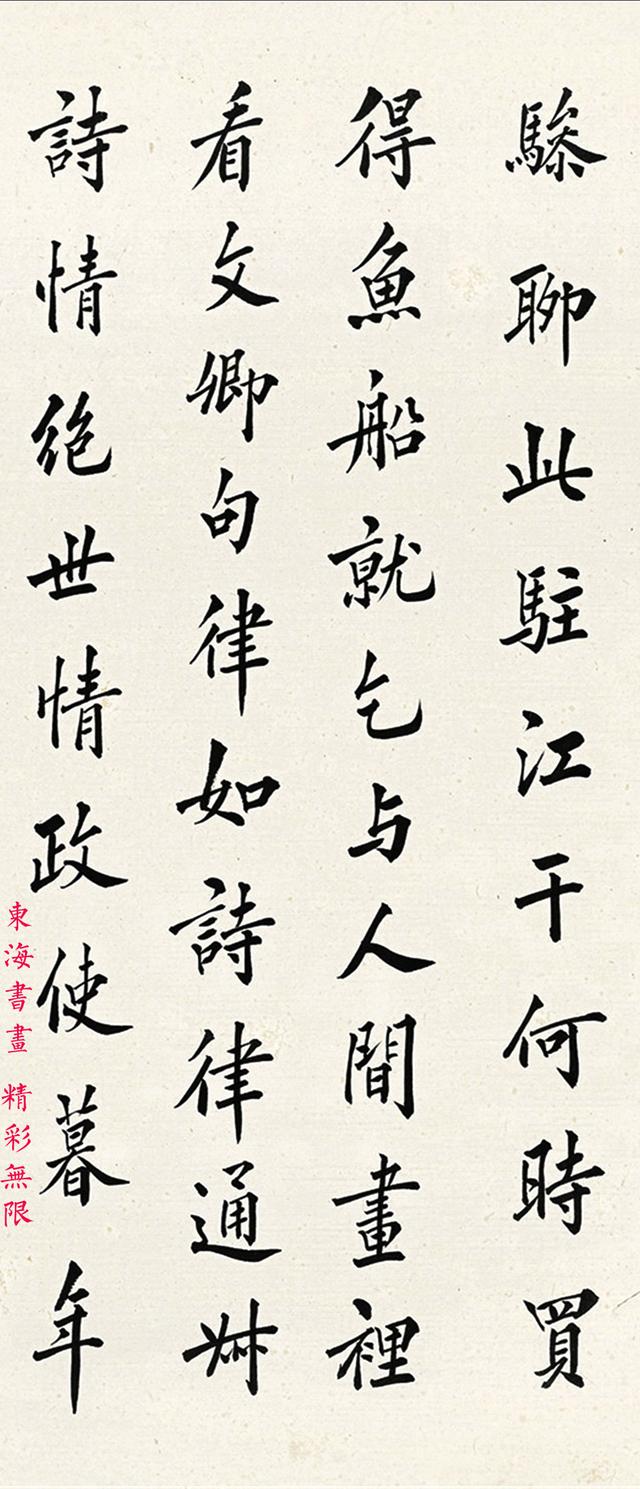 驂聊此駐江干何時買
得魚船就乞与人間畫裡
看文卿句律如詩律通叔
詩情絶世情政使暮年
東海書畫 精彩無限